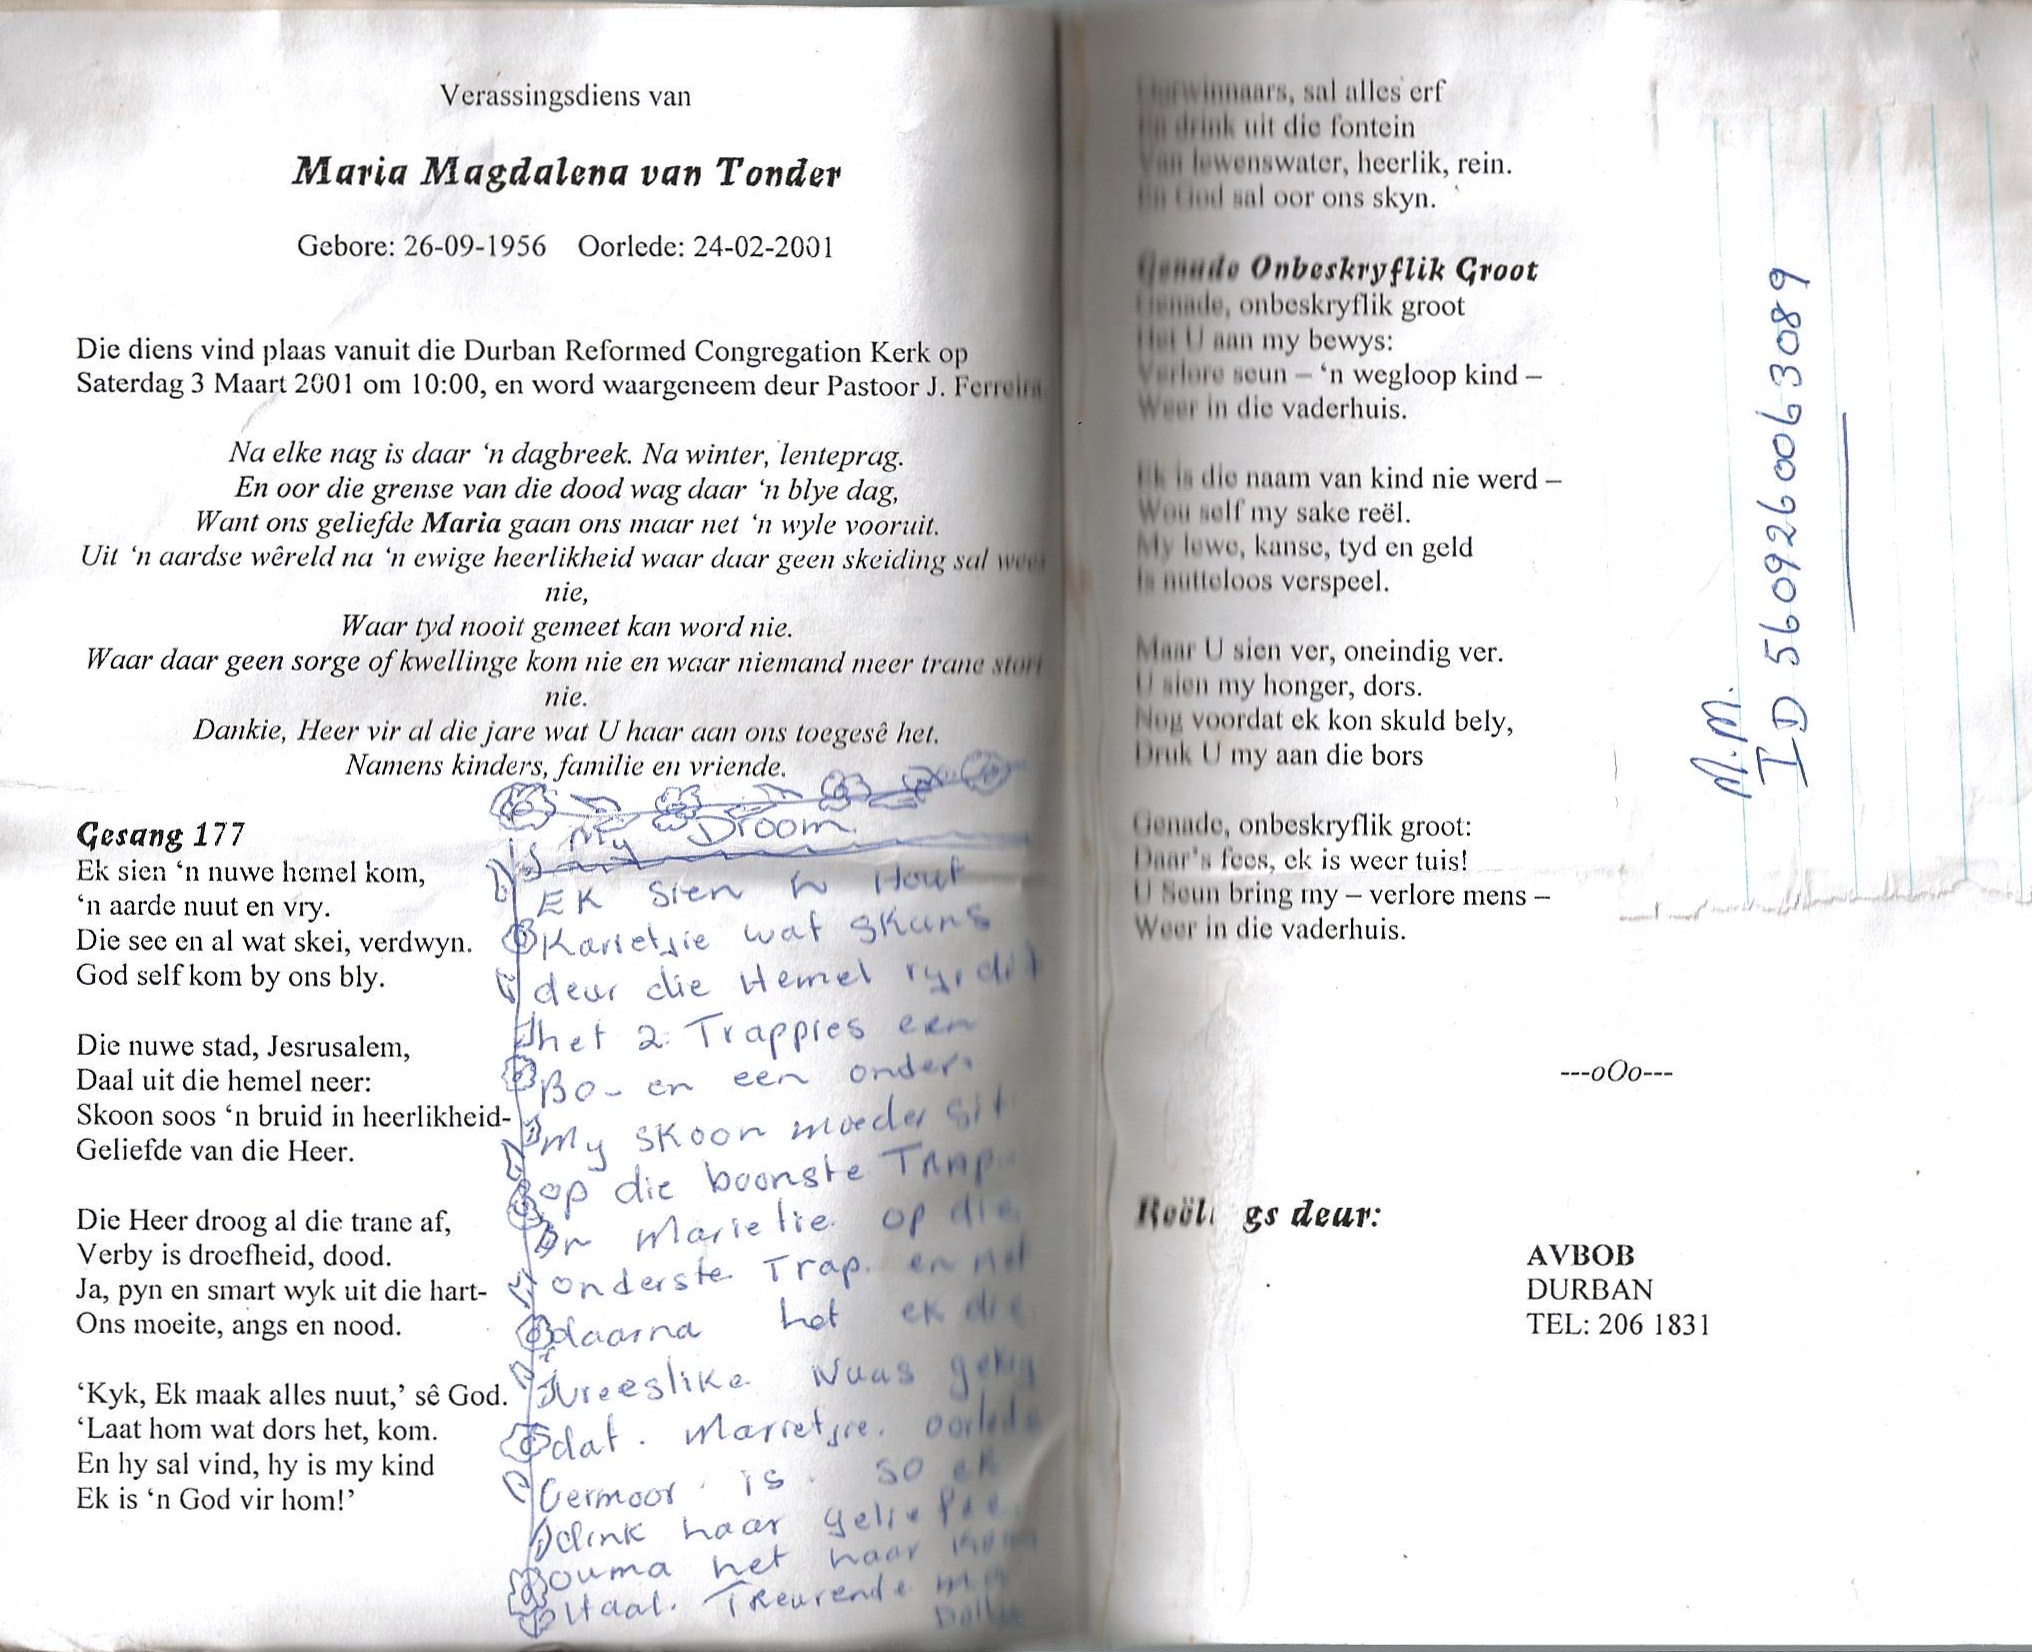 Verassingsdiens van
Maria Magdalena van Tonder
Gebore: 26-09-1956 Oorlede: 24-02-2001
Die diens vind plaas vanuit die Durban Reformed Congregation Kerk op
Saterdag 3 Maart 2001 om 10:00, en word waargeneem deur Pastoor J. Ferreira
Na elke nag is daar ‘n dagbreek. Na winter, lenteprag.
En oor die grense van die dood wag daar ‘n blye dag,
Want ons geliefde Maria gaan ons maar net ‘n wyle vooruit.
Uit ‘n aardse wêreld na ‘n ewige heerlikheid waar daar geen skeiding sal wees
nie,
Waar tyd nooit gemeet kan word nie.
Waar daar geen sorge of kwellinge kom nie en waar niemand meer trane stort
nie.
Dankie, Heer vir al die jare wat U haar aan ons toegesê het.
Namens kinders, familie en vriende.
Gesang 177
Ek sien ‘n nuwe hemel kom,
‘n aarde nuut en vry.
Die see en al wat skei, verdwyn.
God self kom by ons bly.
Die nuwe stad, Jesrusalem,
Daal uit die hemel neer:
Skoon soos ‘n bruid in heerlikheid-
Geliefde van die Heer.
Die Heer droog al die trane af,
Verby is droefheid, dood.
Ja, pyn en smart wyk uit die hart-
Ons moeite, angs en nood.
‘Kyk, Ek maak alles nuut,’ sê God.
‘Laat hom wat dors het, kom.
En hy sal vind, hy is my kind
Ek is ‘n God vir hom!’
My Droom.
EK sien 'n Hout
Karietjie wat skuns
deur die Hemel ry, dit
het 2. Trappies een
Bo- en een onder.
My skoon moeder sit
op die boonste TRAP.
En Marietie op die
onderste Trap. en net
daarna het ek die
Vreeslike Nuus gekry
dat. Marietjie. oorlede
Vermoor is. so ek
dink haar geliefde
ouma het haar kom
Haal. Treurende ma
Dollie
Oorwinnaars, sal alles erf
En drink uit die fontein
Van lewenswater, heerlik, rein.
En God sal oor ons skyn.
Genade Onbeskryflik Groot
Genade, onbeskryflik groot
Het U aan my bewys:
Verlore seun – ‘n wegloop kind –
Weer in die vaderhuis.
Ek is die naam van kind nie werd –
Wou self my sake reël.
My lewe, kanse, tyd en geld
Is nutteloos verspeel.
Maar U sien ver, oneindig ver.
U sien my honger, dors.
Nog voordat ek kon skuld bely,
Druk U my aan die bors
Genade, onbeskryflik groot:
Daar’s fees, ek is weer tuis!
U Seun bring my – verlore mens –
Weer in die vaderhuis.
---oOo---
Reël gs deur:
AVBOB
DURBAN
TEL: 206 1831
M.M.
ID 5609260063089